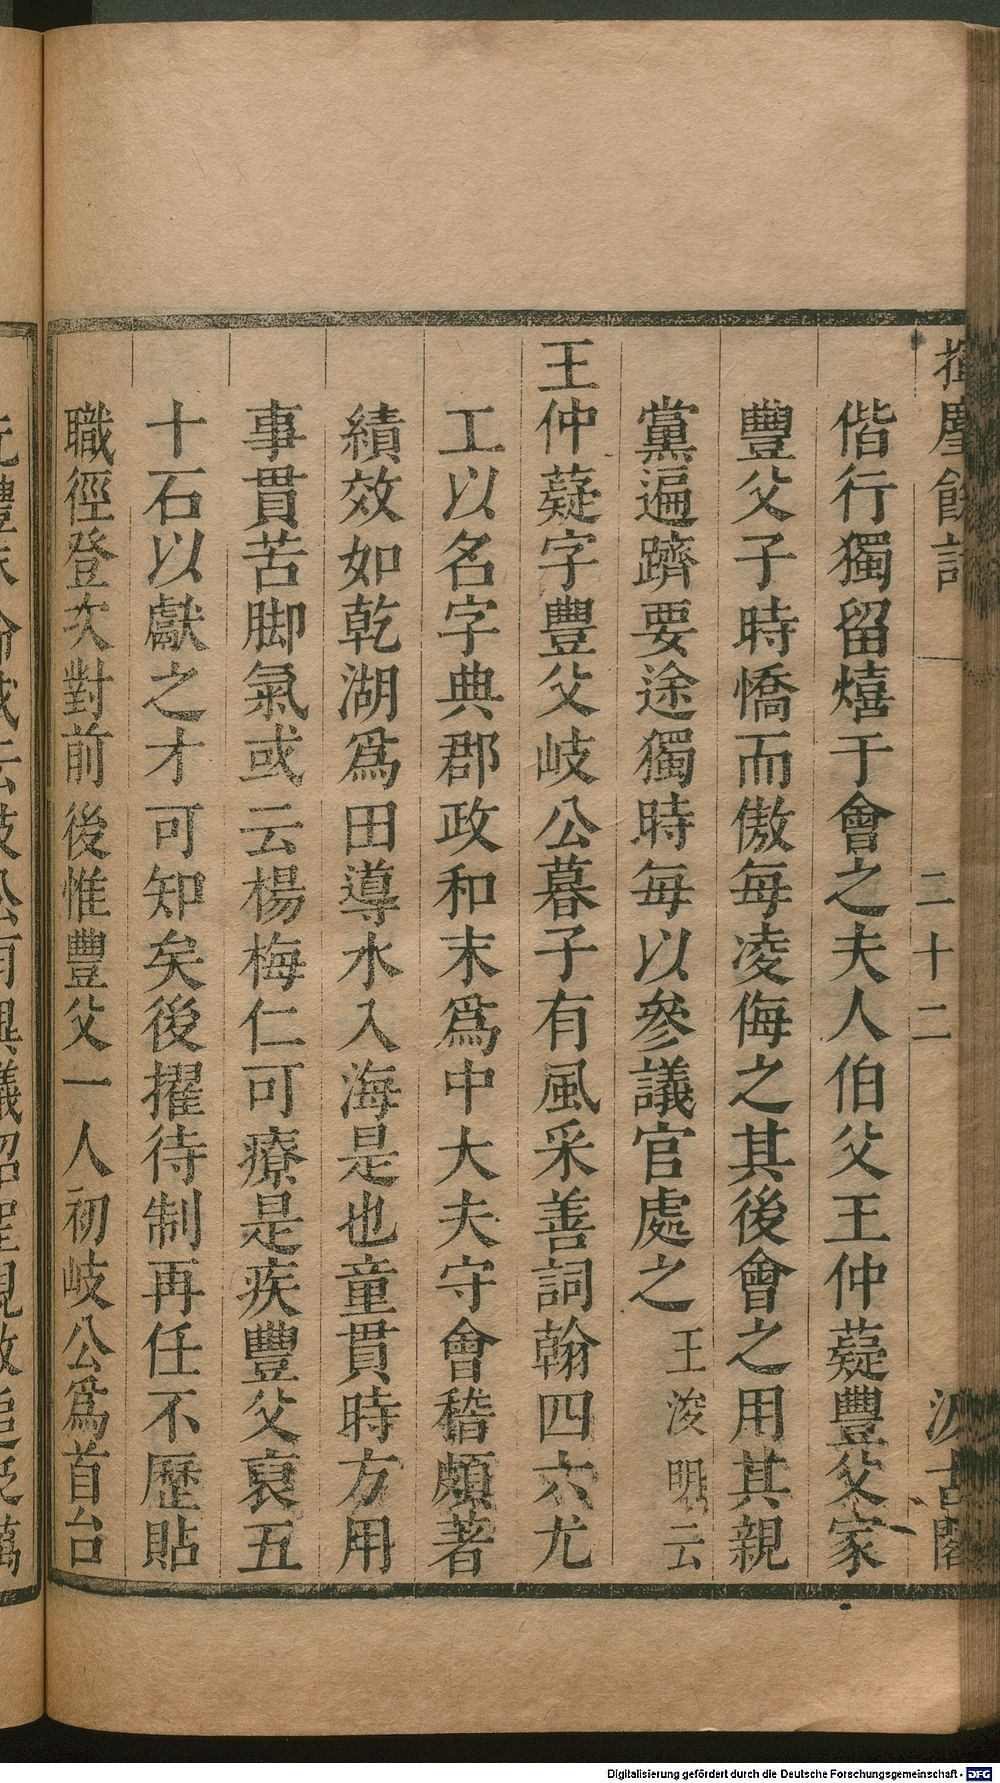 揮麈餘話
二十二
汲古閣
偕行獨留熺于會之夫人伯父王仲薿豐父家
豐父子時憍而傲每凌侮之其後會之用其親
黨遍躋要途獨時每以參議官處之王浚明云
王仲薿字豐父岐公暮子有風采善詞翰四六尤
工以名字典郡政和末爲中大夫守會稽頗著
績效如乾湖爲田導水入海是也童貫時方用
事貫苦脚氣或云楊梅仁可療是疾豐父裒五
十石以獻之才可知矣後擢待制再任不歷貼
職徑登次對前後惟豐父一人初岐公爲首台
Digitalisierung gefördert durch die Deutsche Forschungsgemeinschaft - DFG